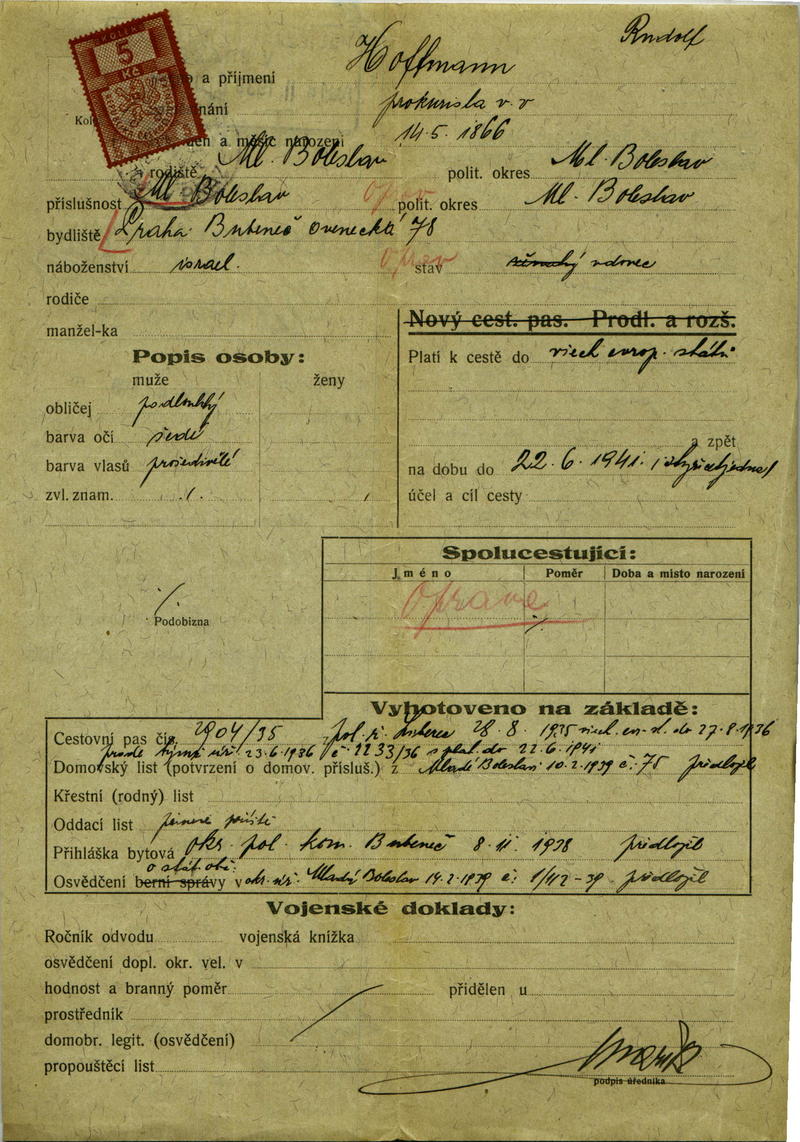 KOLEK
5
Kč
Rudolf
a příjmení Hoffmann
nání prokurista v. v
Kol
den a měsíc narození 14. 5. 1866
a rodiště Ml. Boleslav polit. okres Ml. Boleslav
příslušnost Ml. Boleslav polit. okres Ml. Boleslav
oprav
bydliště Praha Bubeneč Ovenecká 78
náboženství israel. stav ženatý vdovec
oprav
rodiče
manžel-ka
Nový cest. pas. Prodl. a rozš.
Popis osoby:
muže ženy
obličej podlouhlý
barva očí šedé
barva vlasů prošedivělé
zvl. znam. ./.
Platí k cestě do všech evrop. států
a zpět
na dobu do 22. 6. 1941.
účel a cíl cesty
Spolucestující:
Jméno Poměr Doba a misto narozeni
Oprava
Podobizna
Vyhotoveno na základě:
Cestovní pas čís. 2904/35 pol. ř. Liberec 28. 8. 1935 všech ev. st. do 27. 8. 1936
týmž úř. 23. 6. 1936 č. 2233/36 s plat. do 22. 6. 1941
Domovský list (potvrzení o domov. přísluš.) z Mladé Boleslavi 10. 2. 1939 č. 75 předložil
Křestní (rodný) list
Oddací list
Přihláška bytová okr. pol. kom. Bubeneč 8. 11. 1938 předložil
o stát. obč.
Osvědčení berní správy v okr. úř. Mladá Boleslav 14. 2. 1939 č. 1/112-39 předložil
Vojenské doklady:
Ročník odvodu vojenská knížka
osvědčení dopl. okr. vel. v
hodnost a branný poměr přidělen u
prostředník
domobr. legit. (osvědčení)
propouštěcí list
podpis úředníka